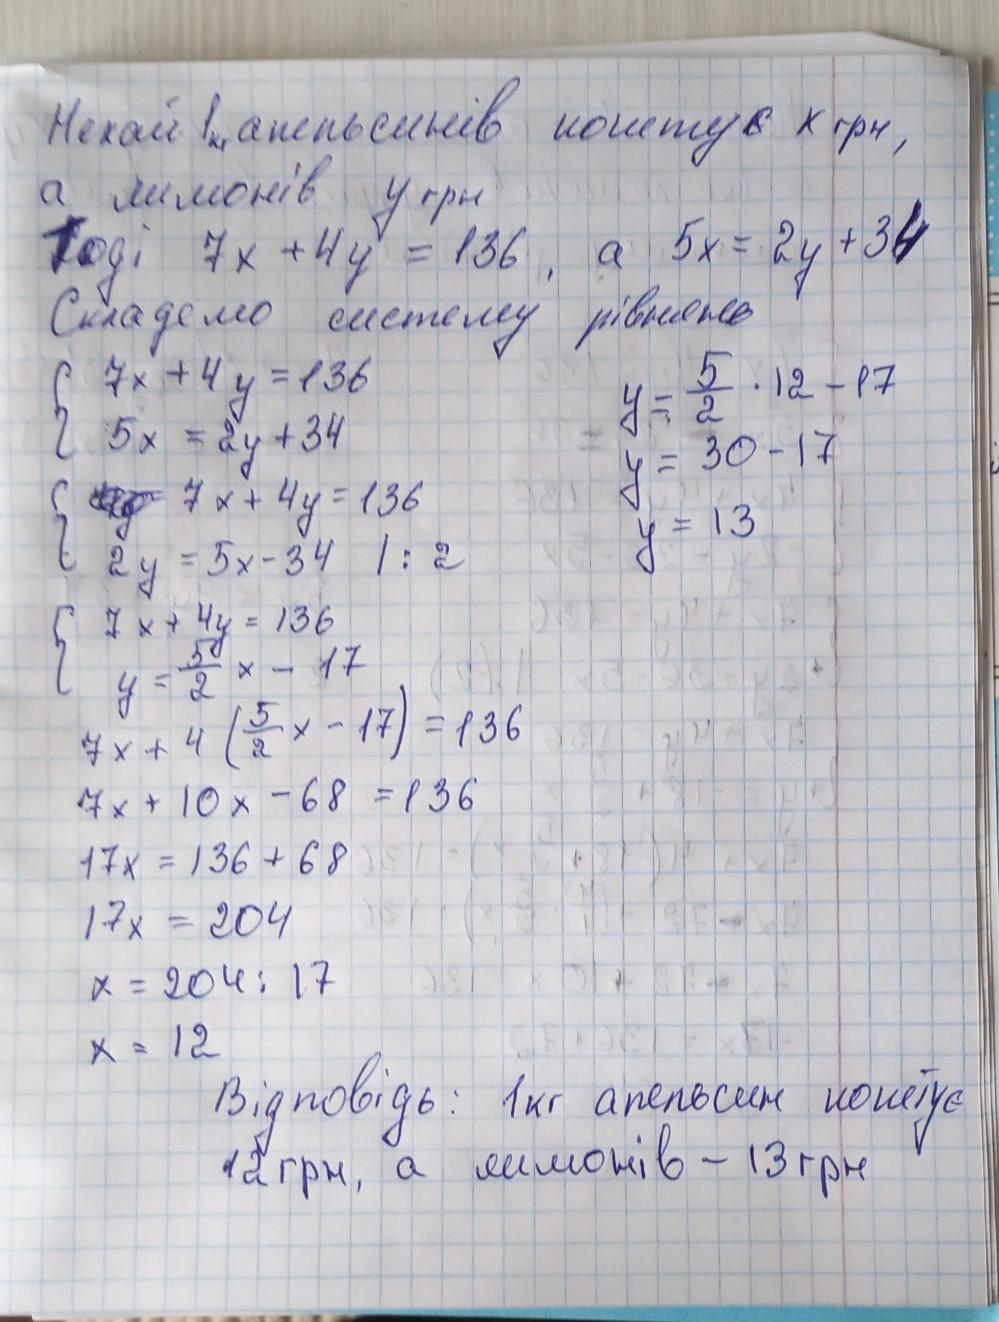 Нехай 1кг апельсинів коштує x грн,
а лимонів y грн
Тоді 7x + 4y = 136, а 5x = 2y + 34
Складемо систему рівнянь
7x + 4y = 136
5x = 2y + 34
7x + 4y = 136
2y = 5x - 34 | : 2
7x + 4y = 136
y = 5/2 x - 17
7x + 4 (5/2 x - 17) = 136
7x + 10x - 68 = 136
17x = 136 + 68
17x = 204
x = 204 : 17
x = 12
y = 5/2 · 12 - 17
y = 30 - 17
y = 13
Відповідь: 1кг апельсин коштує
12 грн, а лимонів - 13 грн